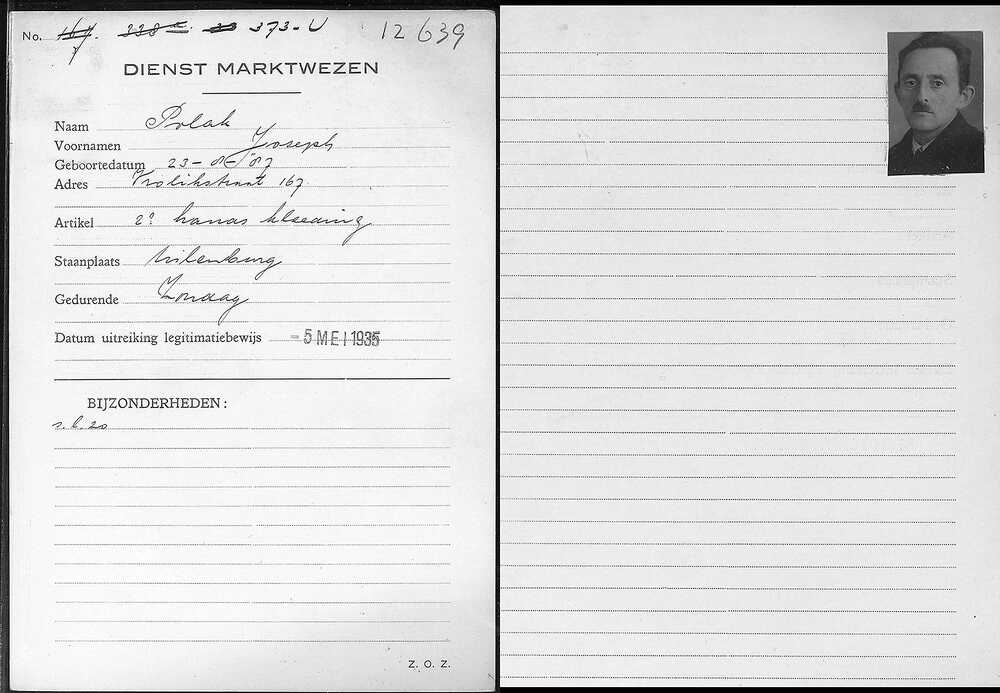 No. 167. 338 373-U 12639
DIENST MARKTWEZEN
Naam Polak
Voornamen Joseph
Geboortedatum 23-8-'87
Adres Vrolikstraat 167
Artikel 2e hands kleeding
Staanplaats Uilenburg
Gedurende Zondag
Datum uitreiking legitimatiebewijs -5 MEI 1935
BIJZONDERHEDEN:
s.b. 20
Z. O. Z.